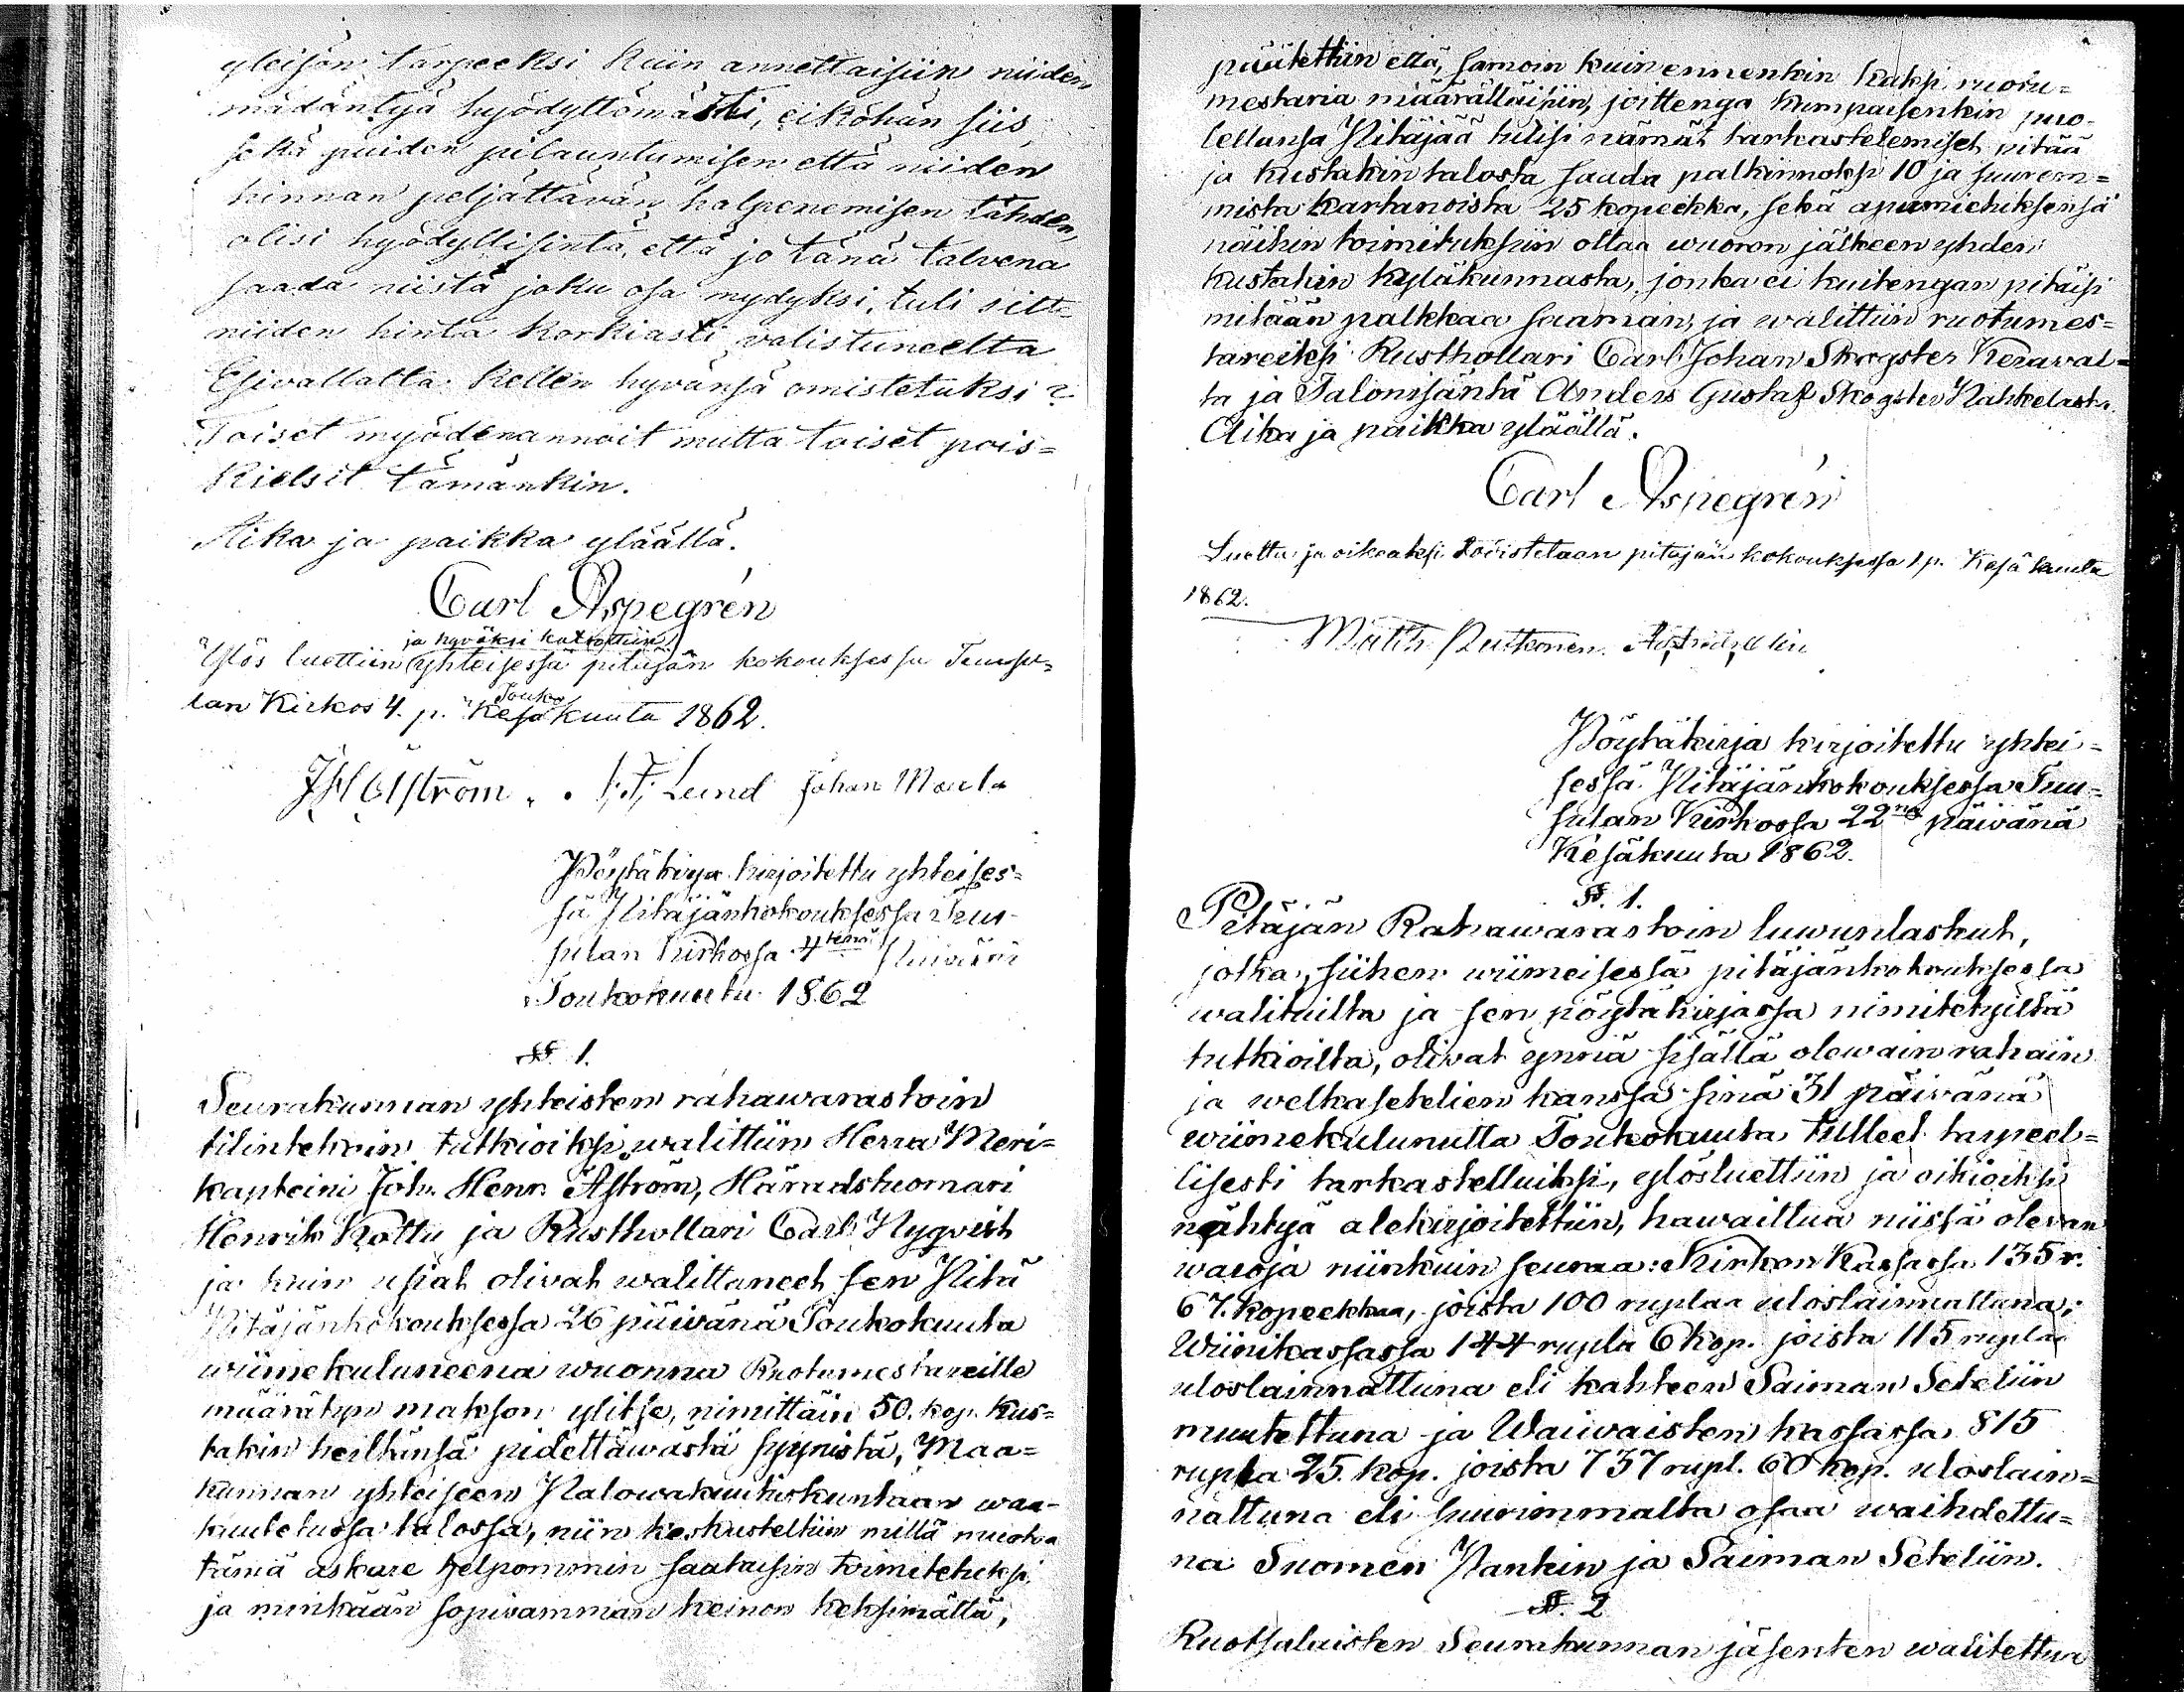 yleisön tarpeeksi kuin annettaisiin niiden
mädäntyä hyödyttömästi, eiköhän siis,
sekä puiden pilauntumisen että niiden
hinnan peljättävän halpenemisen tähden,
olisi hyödyllisintä, että jo tänä talvena
saada niistä joku osa myödyksi, tuli sitte
niiden hinta korkiasti valistuneelta
Esivallalta kellen hyvänsä omistetuksi?
Toiset myödenannoit mutta toiset pois=
kielsit tämänkin.
Aika ja paikka yläällä.
Carl Aspegrén
ja hyväksi katsottiin
Ylös luettiin yhteisessä pitäjän kokouksessa Tuusu=
lan Kirkos 4. p. Kesäkuuta 1862.
Touko
J H Åström. F. Lund Johan Maula
Pöytäkirja kirjoitettu yhteises=
sä Pitäjänkokouksessa Tuu-
sulan kirkossa 4tenä Päivänä
Toukokuuta 1862
§. 1.
Seurakunnan yhteisten rahawarastoin
tilintekoin tutkioiksi walittiin Herra Meri=
kapteini Joh. Henr. Åström, Häradstuomari
Henrik Kottu ja Rusthollari Carl Nyqvist
ja kuin usiat olivat walittaneet sen Pitä
Pitäjänkokouksessa 26 päivänä Toukokuuta
wiimekuluneena wuonna Ruotumestareille
määrätyn makson ylitse, nimittäin 50. kop. kus=
takin heiltänsä pidettäwästä syynistä, Maa=
kunnan yhteiseen Palowakuutuskuntaan waa-
kuutetussa talossa, niin keskusteltiin millä muoto
tämä askare helpommin saataisiin toimitetuksi,
ja minkään sopivamman keinon keksimättä,
päätettiin että, samoin kuin ennenkin kaksi ruotu=
mestaria määrättäisiin, joittenga kumpaisenkin puo-
lellansa Pitäjää tulisi nämät tarkastelemiset pitää
ja kustakin talosta saada palkinnoksi 10 ja suurem=
mista kartanoista 25 kopeekka, sekä apumieheksensä
näihin toimituksiin ottaa wuoron jälkeen yhden
kustakin kyläkunnasta, jonka ei kuitengan pitäisi
mitään palkkaa saaman, ja walittiin ruotumes=
tareiksi Rusthollari Carl Johan Skogster Keraval=
ta ja Talonisäntä Anders Gustaf Skogster Nahkelasta.
Aika ja paikka ylääллä.
Carl Aspegrén
Luettu ja oikeaksi todistetaan pitäjän kokouksessa 1 p. Kesäkuuta
1862.
Matth. Rutkonen.
Pöytäkirja kirjoitettu yhtei=
sessä Pitäjänkokouksessa Tuu=
sulan Kirkossa 22na päivänä
Kesäkuuta 1862.
§. 1.
Pitäjän Rahawarastoin luwunlaskut,
jotka, siihen wiimeisessä pitäjänkokouksessa
walituilta ja sen pöytäkirjassa nimitetyiltä
tutkioilta, olivat ynnä sisällä olewain rahain
ja welkasetelien kanssa sinä 31 päivänä
wiimekulunutta Toukokuuta tulleet tarpeel=
lisesti tarkastelluiksi, ylösluettiin ja oikioiksi
nähtyä alekirjoitettiin, hawaittua niissä olevan
waroja niinkuin seuraa: Kirkon Kassassa 135 r.
67. kopeekkaa, joista 100 ruplaa uloslainnattuna;
Wiinikassassa 144 rupla 6 kop. joista 115 ruplaa
uloslainnattuna eli kahteen Saiman Seteliin
muutettuna ja Waiwaisten kassassa 815
rupla 25. kop. joista 737 rupl. 60 kop. uloslain=
nattuna eli suurimmalta osaa waihdettu=
na Suomen Pankin ja Saiman Seteliin.
§. 2
Ruotsalaisten Seurakunnan jäsenten walitettua